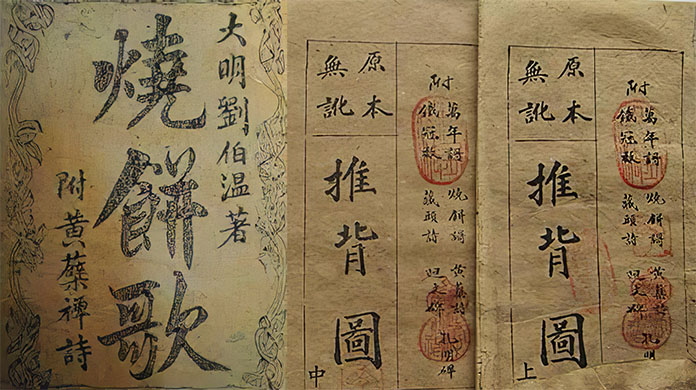 大明劉伯温著
燒餅歌
附黃蘗禪詩
附
萬年謌 燒餅謌 黃蘗詩 孔明碑
鐵冠 藏頭詩 碑
原本
無訛
推背圖
中
附
萬年謌 燒餅謌 黃蘗詩 孔明
鐵冠 藏頭詩 碑
原本
無訛
推背圖
上